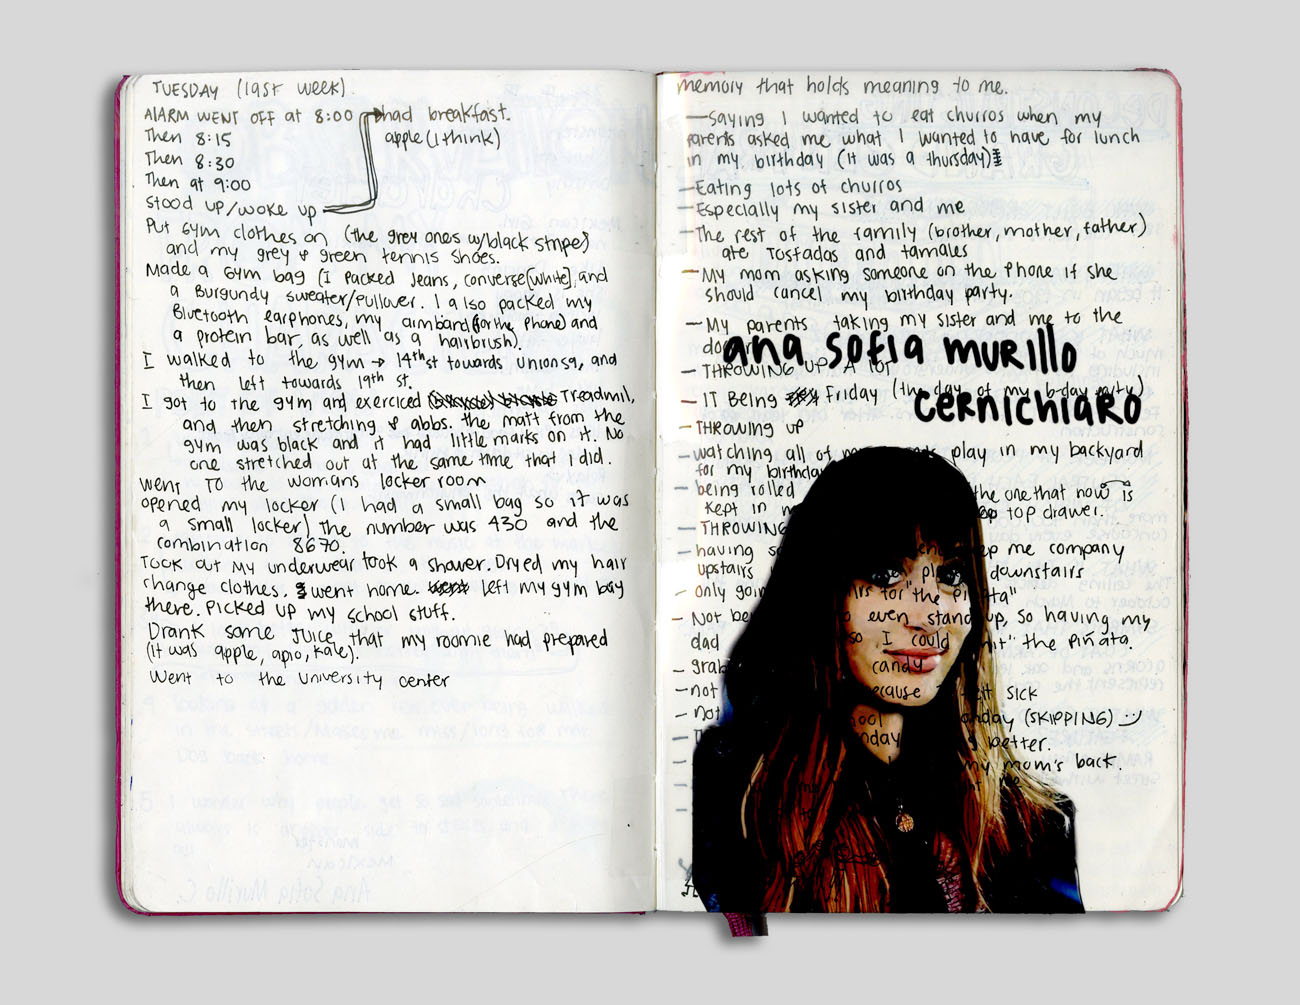 TUESDAY (last week).
Alarm went off at 8:00
had breakfast.
Then 8:15
apple (I think)
Then 8:30
Then at 9:00
stood up/woke up
Put gym clothes on (the grey ones w/black stripe)
and my grey & green tennis shoes.
Made a gym bag (I packed jeans, converse [white], and
a Burgundy sweater/pullover. I also packed my
Bluetooth earphones, my armband (for the phone) and
a protein bar, as well as a hairbrush).
I walked to the gym → 14th st towards Union sq, and
then left towards 19th st.
I got to the gym and exerciced Treadmil,
and then stretching & abbs. the matt from the
gym was black and it had little marks on it. No
one stretched out at the same time that I did.
Went to the womans locker room
opened my locker (I had a small bag so it was
a small locker) The number was 430 and the
combination 8670.
Took out my underwear took a shower. Dryed my hair
change clothes. went home. left my gym bag
there. Picked up my school stuff.
Drank some juice that my roomie had prepared
(it was apple, apio, kale).
Went to the university center
memory that holds meaning to me.
— Saying I wanted to eat churros when my
parents asked me what I wanted to have for lunch
in my birthday (it was a thursday)
— Eating lots of churros
— Especially my sister and me
— The rest of the family (brother, mother, father)
ate tostadas and tamales
— My mom asking someone on the phone if she
should cancel my birthday party.
— My parents taking my sister and me to the
ana sofia murillo
— THROWING UP A lot
— IT Being Friday (the day of my b-day party)
cernichiaro
— THROWING UP
— watching all of play in my backyard
for my birthday
— being rolled the one that now is
kept in top drawer.
— THROWING
— having me company
upstairs downstairs
— only for "the piñata"
— Not even stand up, so having my
dad so I could "hit" the piñata.
— candy
— not because sick
— Not (SKIPPING)
better.
my mom's back.